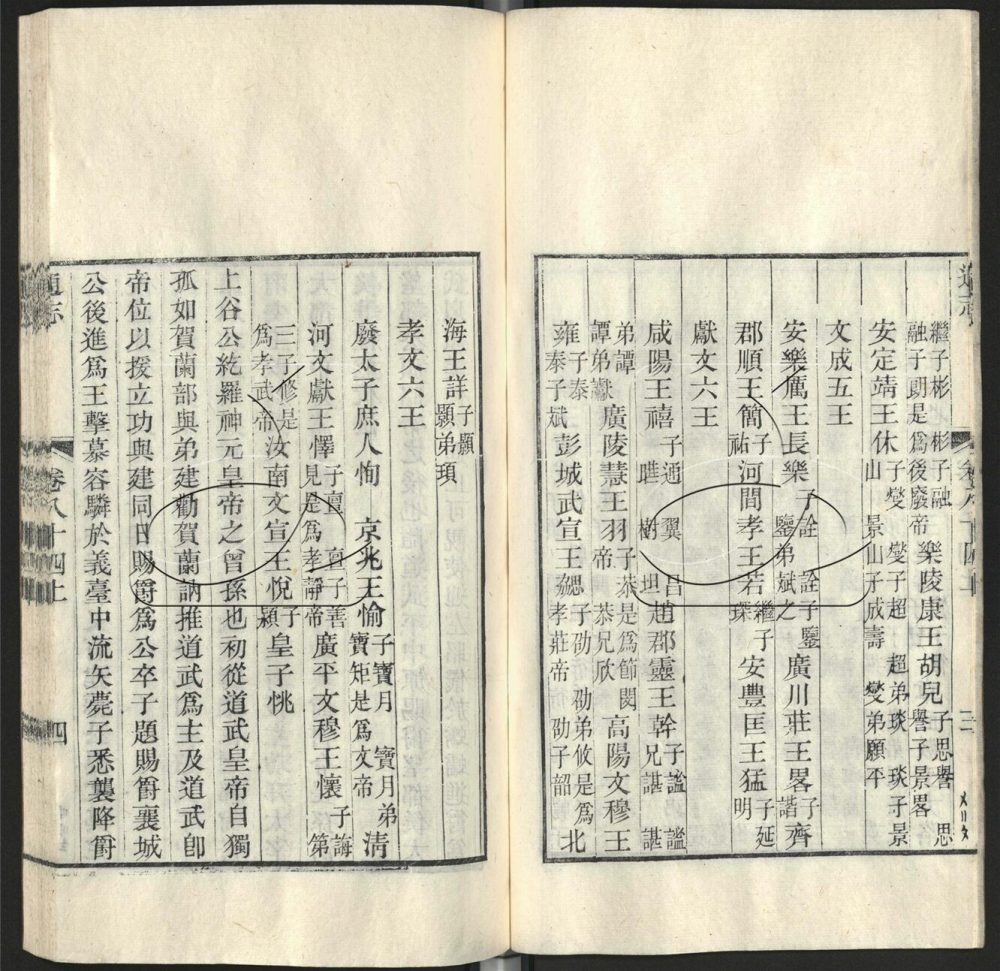 通志 卷八十四上 三
繼子彬 彬子融 融子朗是爲後廢帝 樂陵康王胡兒 子思譽 思譽子景畧
安定靖王休 子燮 燮子超 超弟琰 琰子景山 景山子成壽 燮弟願平
文成五王
安樂厲王長樂 子詮 詮子鑒 鑒弟斌之 廣川莊王畧 子諧 齊
郡順王簡 子祐 河間孝王若 繼子琛 安豐匡王猛 子延明
獻文六王
咸陽王禧 子通 翼 昌 曄 樹 坦 趙郡靈王幹 子謐 謐兄諶 諶
弟譚 譚弟讞 廣陵慧王羽 子恭是爲節閔帝 恭兄欣 高陽文穆王
雍 子泰 泰子斌 彭城武宣王勰 子劭 劭弟攸是爲孝莊帝 劭子韶 北
海王詳 子顥 顥弟頊
孝文六王
廢太子庶人恂 京兆王愉 子寶月 寶月弟寶矩是爲文帝 清
河文獻王懌 子亶 亶子善見是爲孝靜帝 廣平文穆王懷 子誨 第
三子修是爲孝武帝 汝南文宣王悅 子穎 皇子恌
上谷公紇羅神元皇帝之曾孫也初從道武皇帝自獨
孤如賀蘭部與弟建勸賀蘭訥推道武爲主及道武卽
帝位以援立功與建同日賜爵爲公卒子題賜爵襄城
公後進爲王擊慕容驎於義臺中流矢薨子悉襲降爵
通志 卷八十四上 四